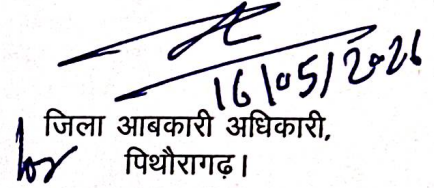 16/05/2026
जिला आबकारी अधिकारी,
पिथौरागढ़।